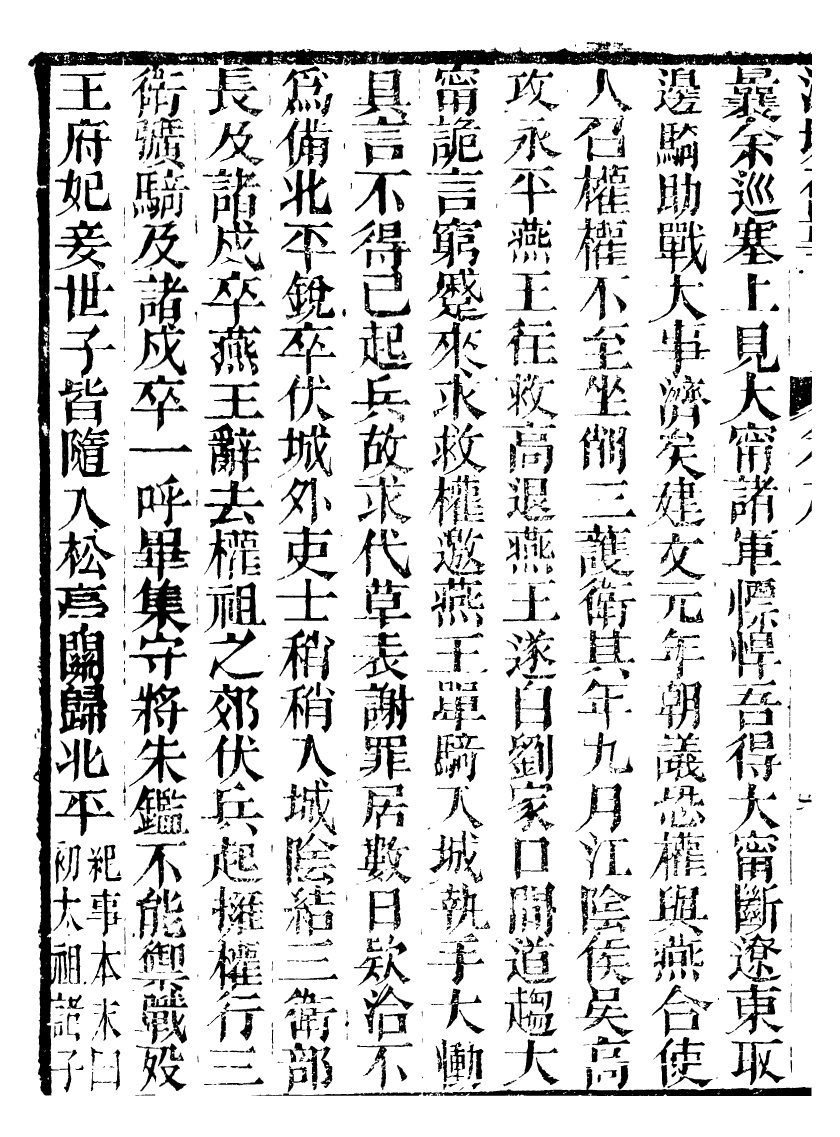 曩余巡塞上見大甯諸軍慓悍吾得大甯斷遼東取
邊騎助戰大事濟矣建文元年朝議恐權與燕合使
人召權權不至坐削三護衛其年九月江陰侯吳高
攻永平燕王往救高退燕王遂自劉家口間道趨大
甯詭言窮蹙來求救權邀燕王單騎入城執手大慟
具言不得已起兵故求代草表謝罪居數日欵洽不
爲備北平銳卒伏城外吏士稍稍入城陰結三衛部
長及諸戍卒燕王辭去權祖之郊伏兵起擁權行三
衛彍騎及諸戍卒一呼畢集守將朱鑑不能禦戰歿
王府妃妾世子皆隨入松亭關歸北平
紀事本末曰
初太祖諸子